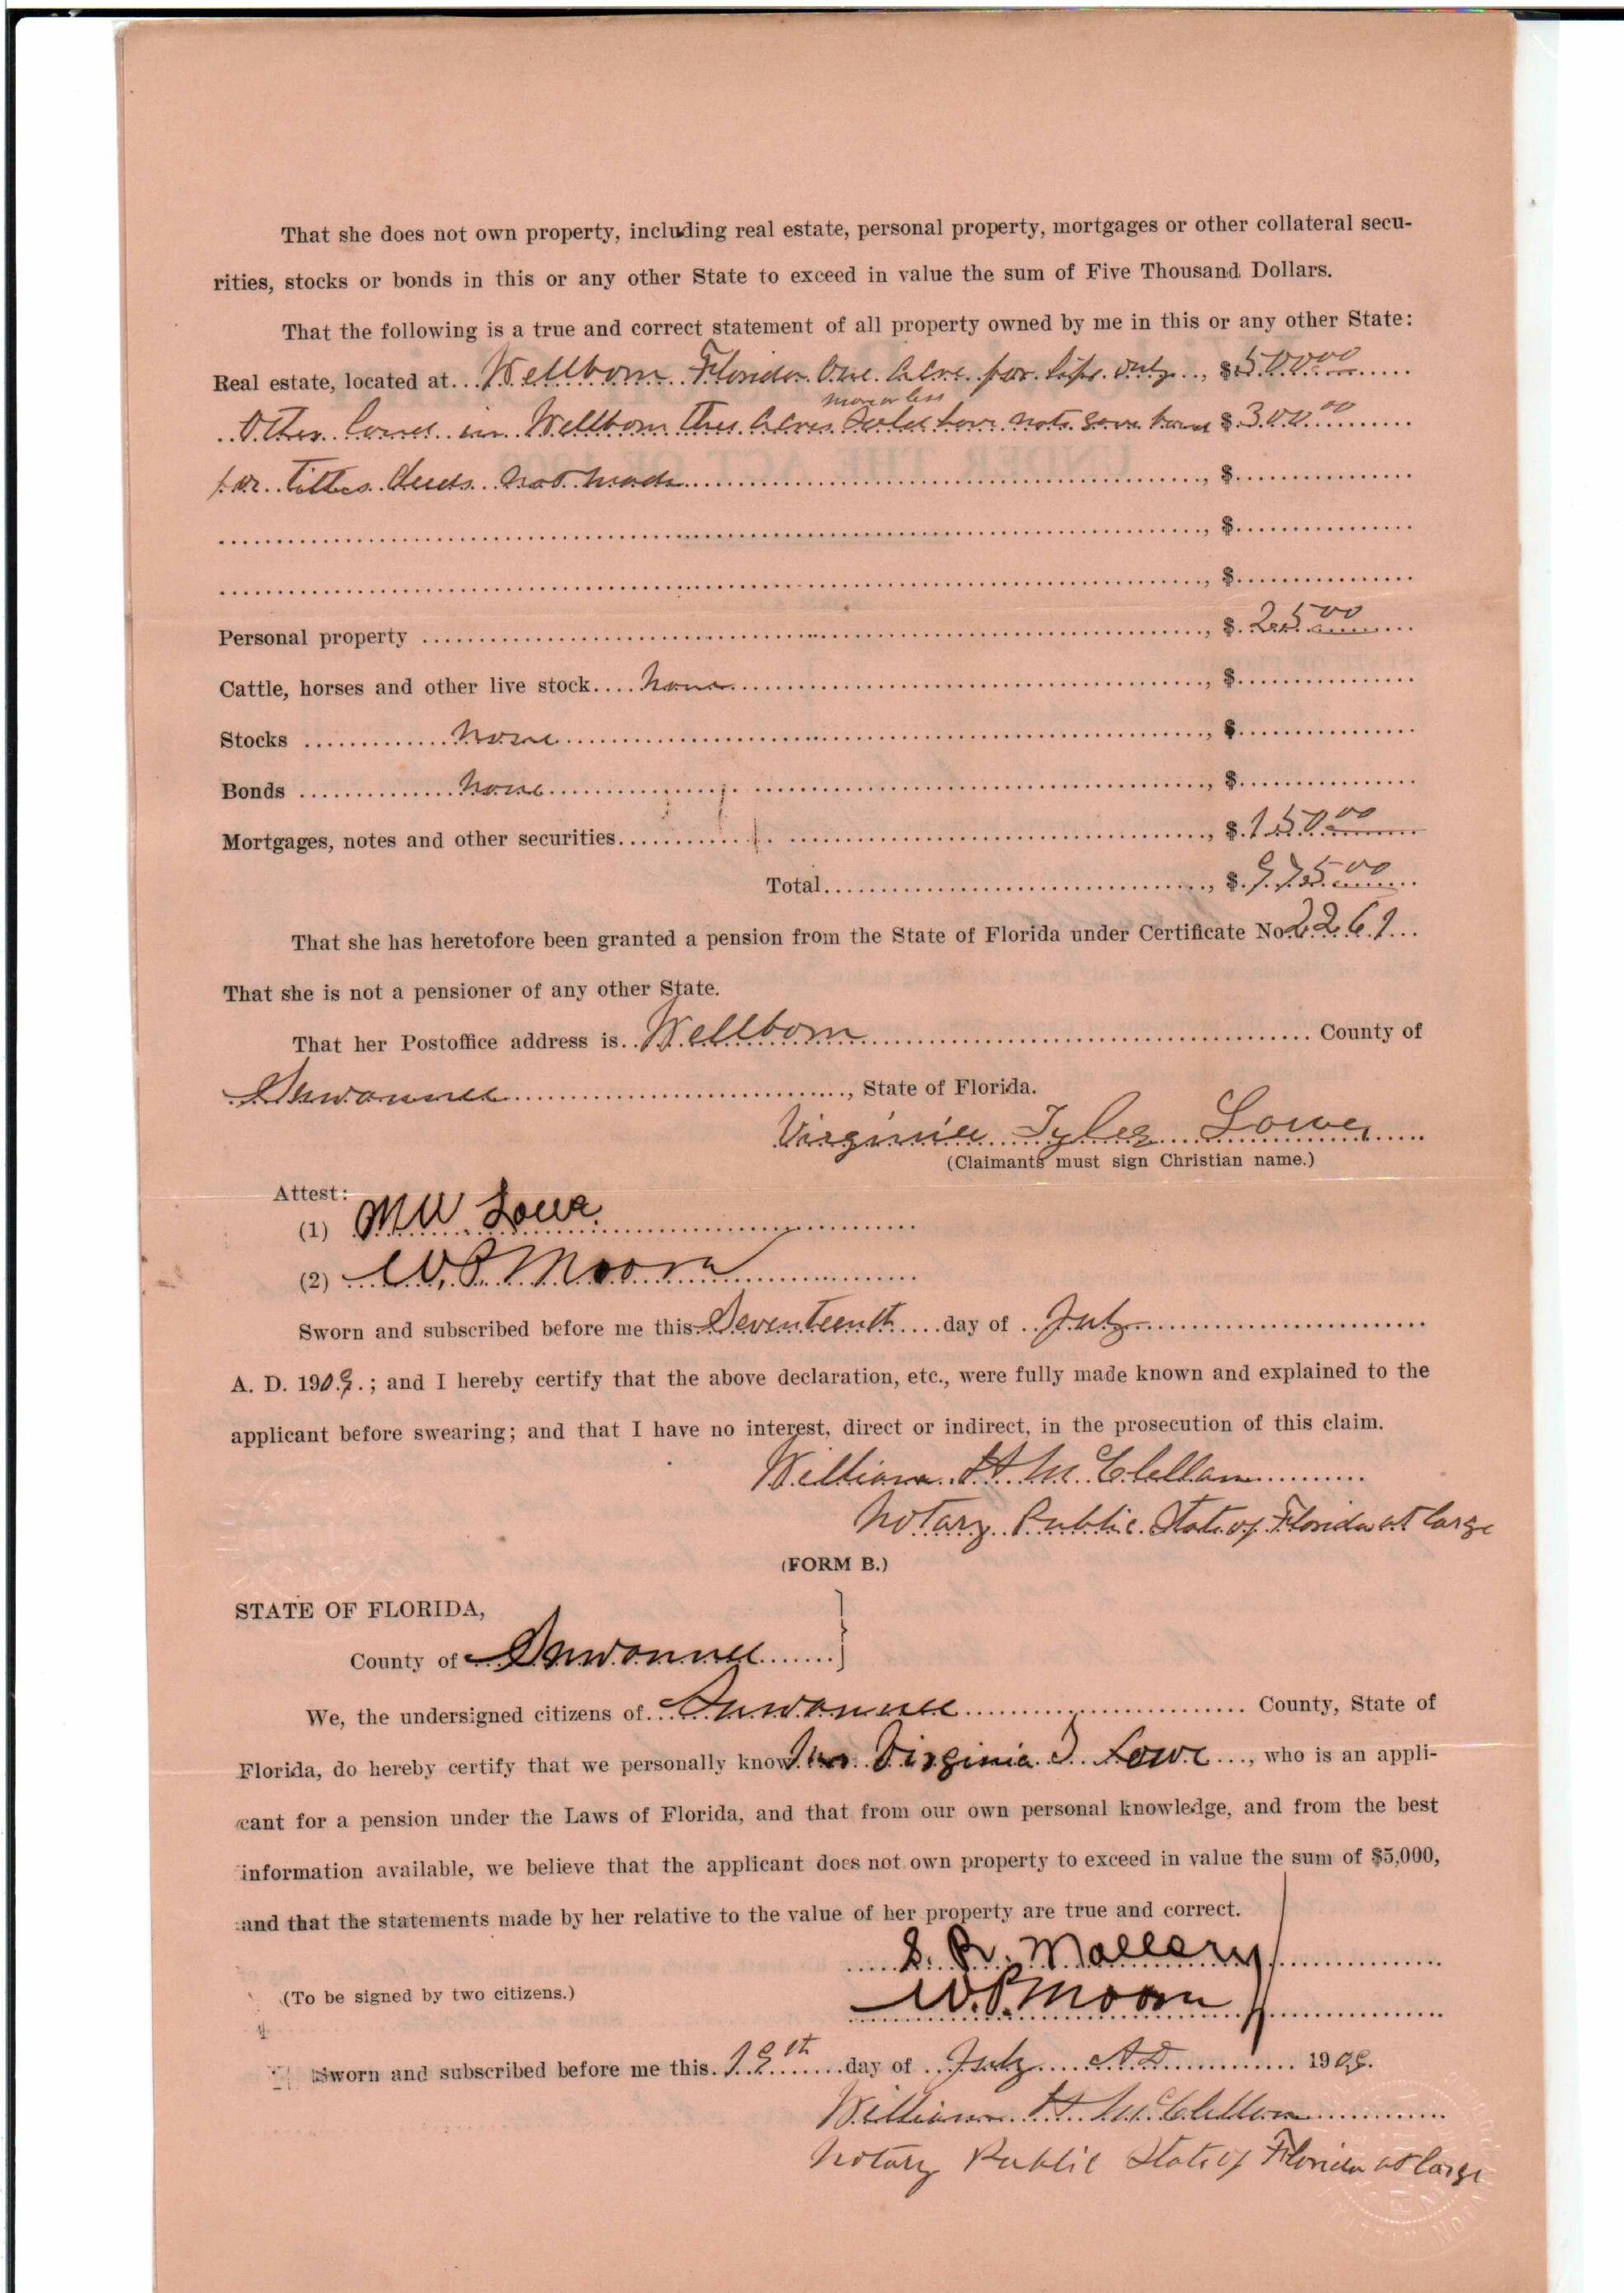 That she does not own property, including real estate, personal property, mortgages or other collateral secu-
rities, stocks or bonds in this or any other State to exceed in value the sum of Five Thousand Dollars.
That the following is a true and correct statement of all property owned by me in this or any other State:
Real estate, located at Wellborn Florida One Acre for life only, $500 00
more or less
Other land in Wellborn three Acres Sold have note gave bond $300 00
for Titles deeds not made, $
, $
, $
Personal property, $25 00
Cattle, horses and other live stock None, $
Stocks None, $
Bonds None, $
Mortgages, notes and other securities, $150 00
Total, $975 00
That she has heretofore been granted a pension from the State of Florida under Certificate No. 2261
That she is not a pensioner of any other State.
That her Postoffice address is Wellborn County of
Suwannee, State of Florida.
Virginia Tyler Lowe
(Claimants must sign Christian name.)
Attest:
(1) M W Lowe
(2) W. P. Moorn
Sworn and subscribed before me this Seventeenth day of July
A. D. 1909.; and I hereby certify that the above declaration, etc., were fully made known and explained to the
applicant before swearing; and that I have no interest, direct or indirect, in the prosecution of this claim.
William H McClellan
Notary Public State of Florida at large
(FORM B.)
STATE OF FLORIDA,
County of Suwannee
We, the undersigned citizens of Suwannee County, State of
Florida, do hereby certify that we personally know Mrs Virginia T Lowe, who is an appli-
cant for a pension under the Laws of Florida, and that from our own personal knowledge, and from the best
information available, we believe that the applicant does not own property to exceed in value the sum of $5,000,
and that the statements made by her relative to the value of her property are true and correct.
S. R. Mallory
(To be signed by two citizens.)
W. P. Moorn
Sworn and subscribed before me this 19th day of July A D 1909.
William H McClellan
Notary Public State of Florida at large